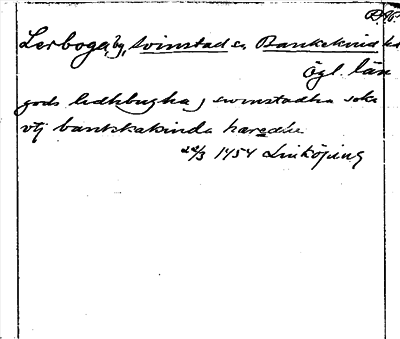 D.W.
Lerboga, by, Svinstad s. Bankekind hd
Ögl. län
gods ledhbugha j swinstadha sokn
vtj bankkakinda hæredhe
22/3 1454 Linköping